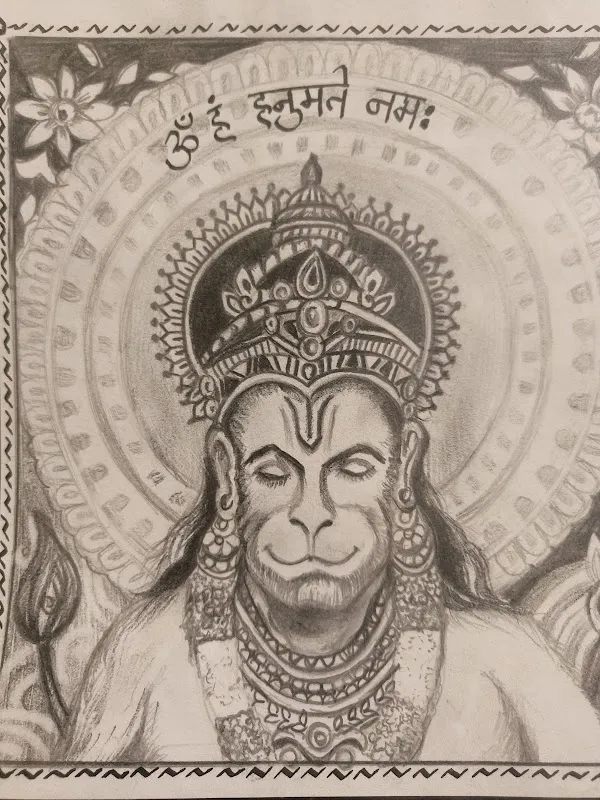 ॐ हं हनुमते नमः